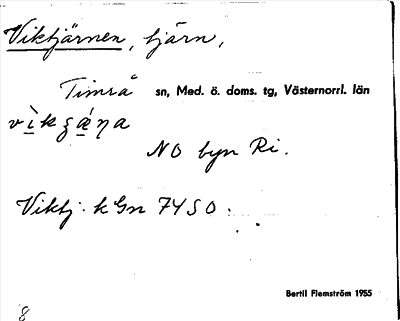 Viktjärnen, tjärn,
Timrå sn, Med. ö. doms. tg, Västernorrl. län
NO byn Ri.
Viktj. k Gn 7450.
Bertil Flemström 1955
8